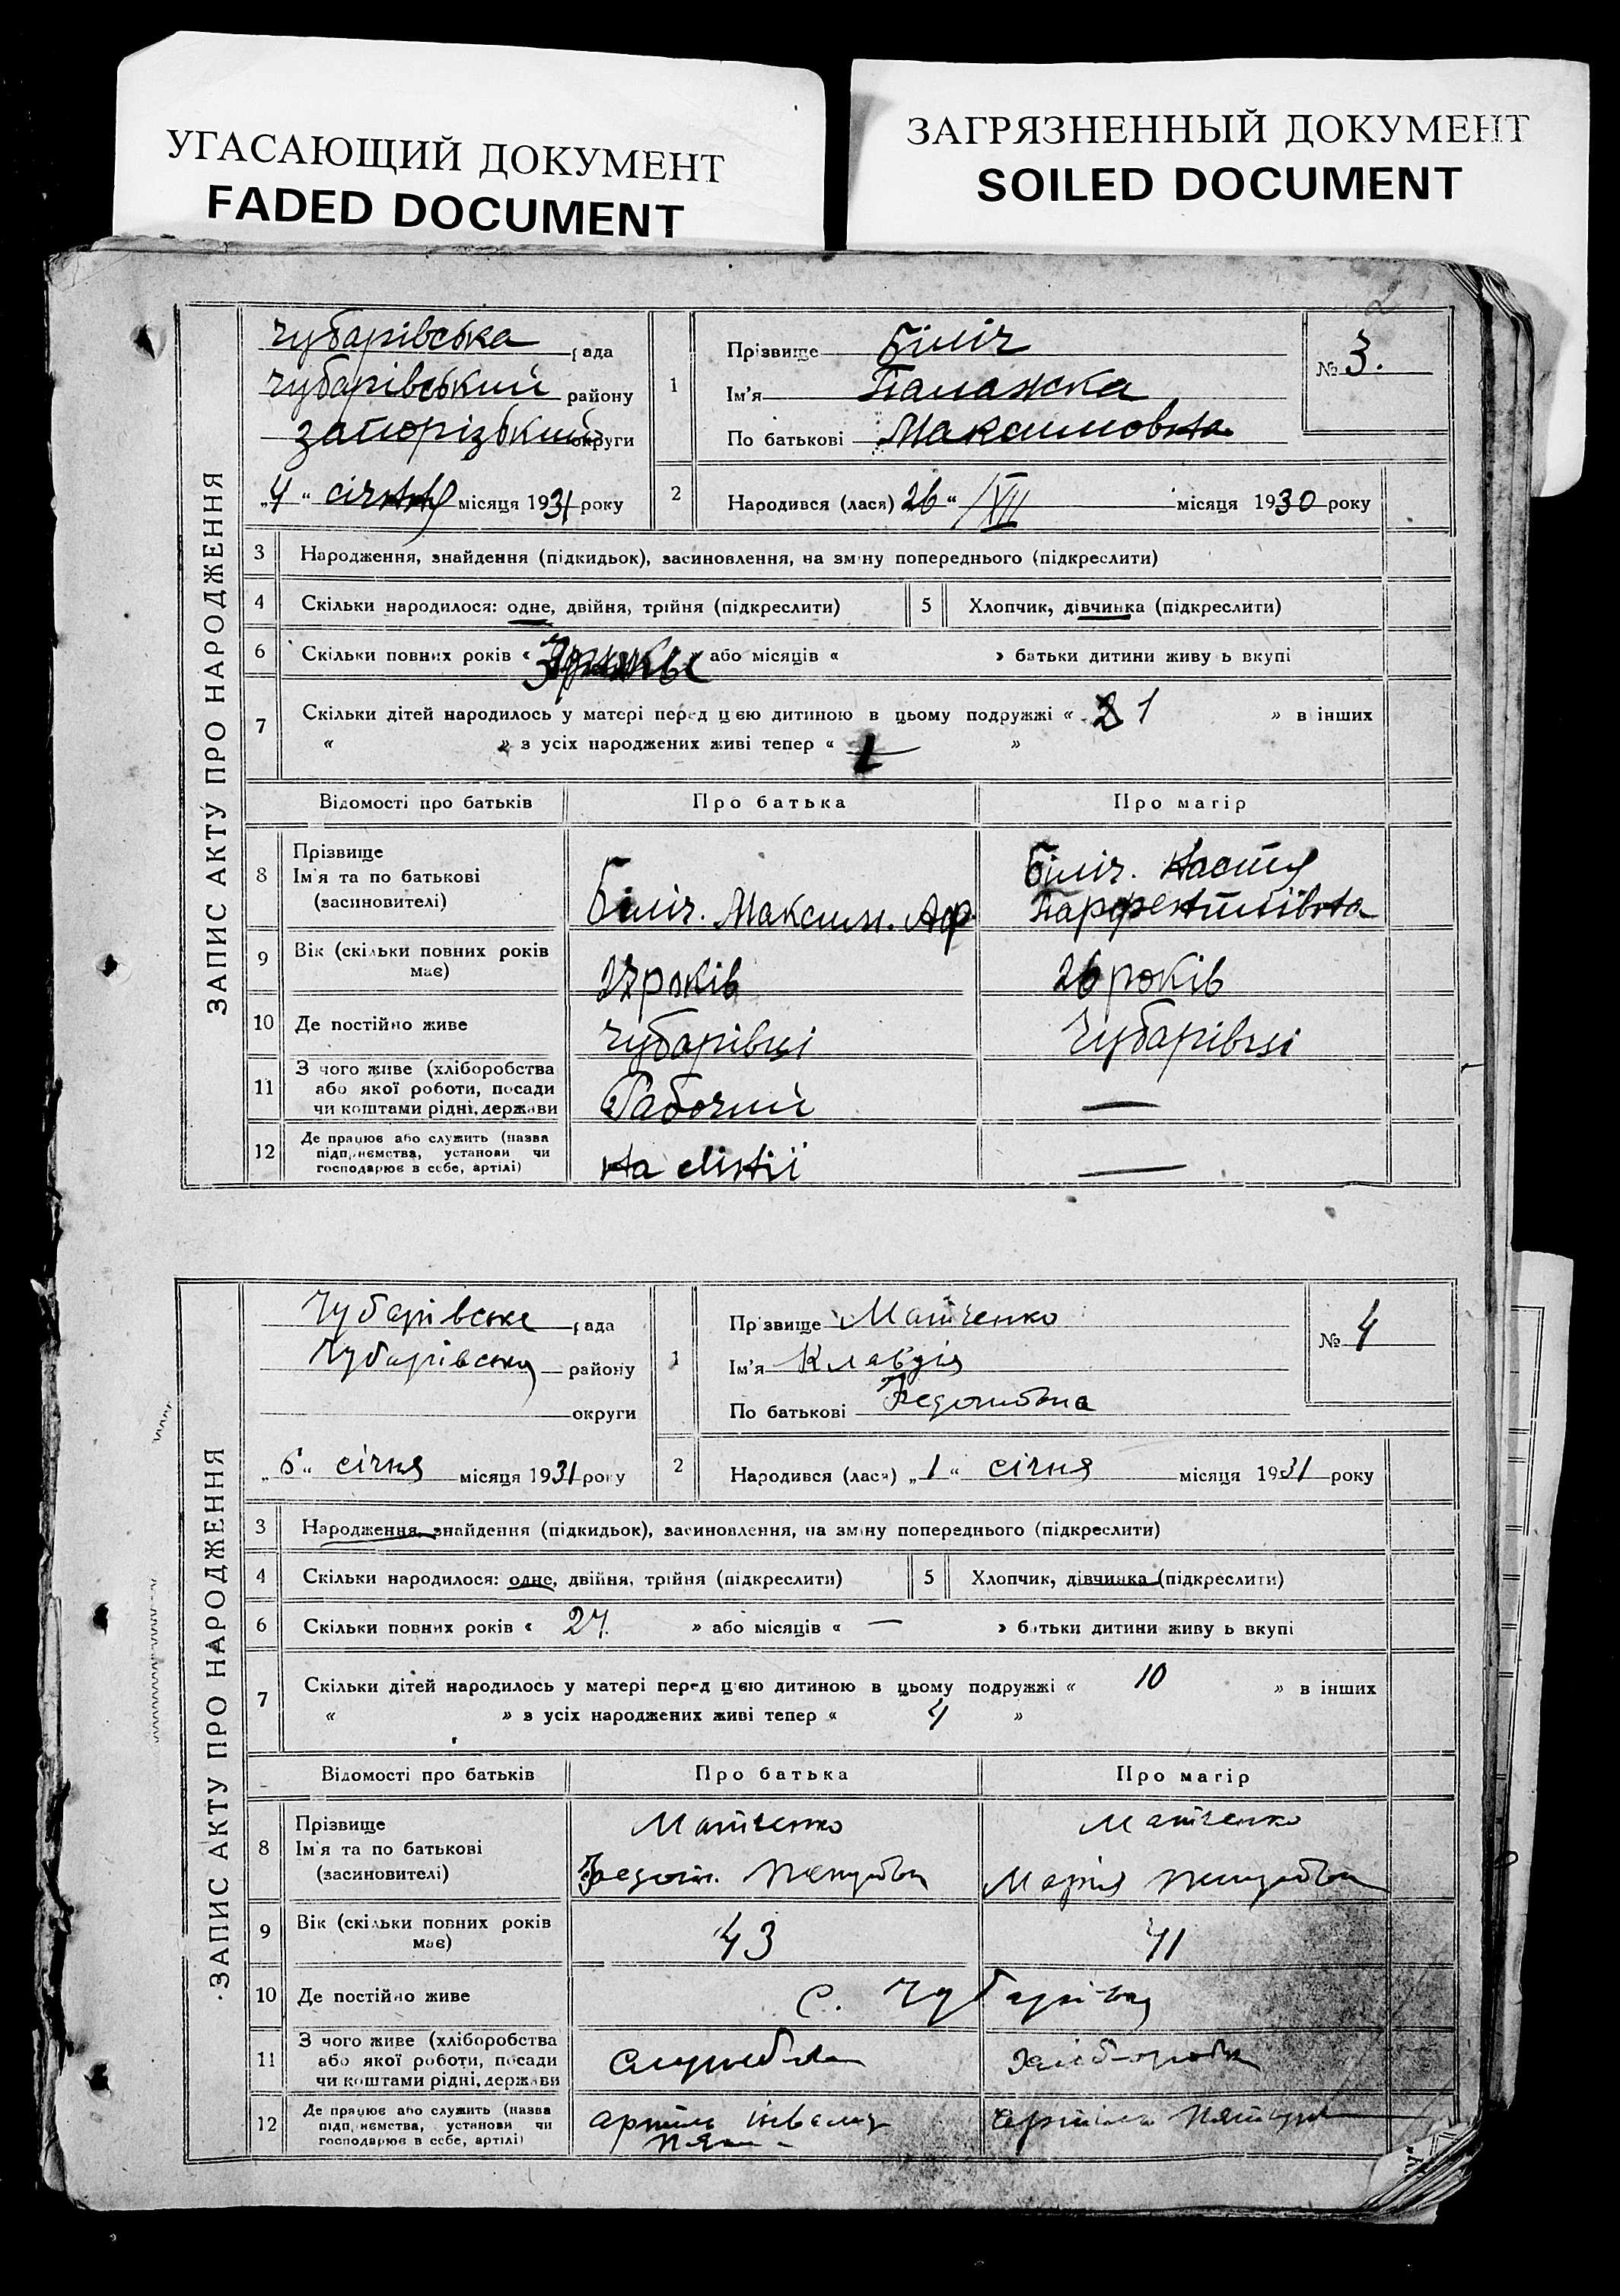 УГАСАЮЩИЙ ДОКУМЕНТ
FADED DOCUMENT
ЗАГРЯЗНЕННЫЙ ДОКУМЕНТ
SOILED DOCUMENT
2
ЗАПИС АКТУ ПРО НАРОДЖЕННЯ
Чубарівська рада
Чубарівський району
Запорізький округи
„4“ січня місяця 1931 року
1
Прізвище Біліч
Ім'я Палажка
По батькові Максимовна
№ 3.
2 Народився (лася) 26 “ /XII місяця 1930 року
3 Народження, знайдення (підкидьок), засиновлення, на зміну попереднього (підкреслити)
4 Скільки народилося: одне, двійня, трійня (підкреслити) 5 Хлопчик, дівчинка (підкреслити)
6 Скільки повних років « або місяців « » батьки дитини живуть вкупі
7 Скільки дітей народилось у матері перед цією дитиною в цьому подружжі « 1 » в інших
« » з усіх народжених живі тепер « 1 »
Відомості про батьків Про батька Про матір
8 Прізвище
Ім'я та по батькові
(засиновителі)
Біліч. Максим. Аф.
Біліч. Настя
Парфентіївна
9 Вік (скільки повних років має) 27 років 26 років
10 Де постійно живе Чубарівці Чубарівці
11 З чого живе (хліборобства
або якої роботи, посади
чи коштами рідні, держави
Рабочий —
12 Де працює або служить (назва
підприємства, установи чи
господарює в себе, артілі)
на лінії —
ЗАПИС АКТУ ПРО НАРОДЖЕННЯ
Чубарівське рада
Чубарівську району
округи
„6“ січня місяця 1931 року
1
Прізвище Матченко
Ім'я Клавдія
По батькові Федотовна
№ 4
2 Народився (лася) „1“ січня місяця 1931 року
3 Народження, знайдення (підкидьок), засиновлення, на зміну попереднього (підкреслити)
4 Скільки народилося: одне, двійня, трійня (підкреслити) 5 Хлопчик, дівчинка (підкреслити)
6 Скільки повних років « 24 » або місяців « — » батьки дитини живуть вкупі
7 Скільки дітей народилось у матері перед цією дитиною в цьому подружжі « 10 » в інших
« » з усіх народжених живі тепер « 4 »
Відомості про батьків Про батька Про матір
8 Прізвище
Ім'я та по батькові
(засиновителі)
Матченко
Федот.
Матченко
Марія
9 Вік (скільки повних років має) 43 41
10 Де постійно живе с. Чубарівка
11 З чого живе (хліборобства
або якої роботи, посади
чи коштами рідні, держави
12 Де працює або служить (назва
підприємства, установи чи
господарює в себе, артілі)
артіль